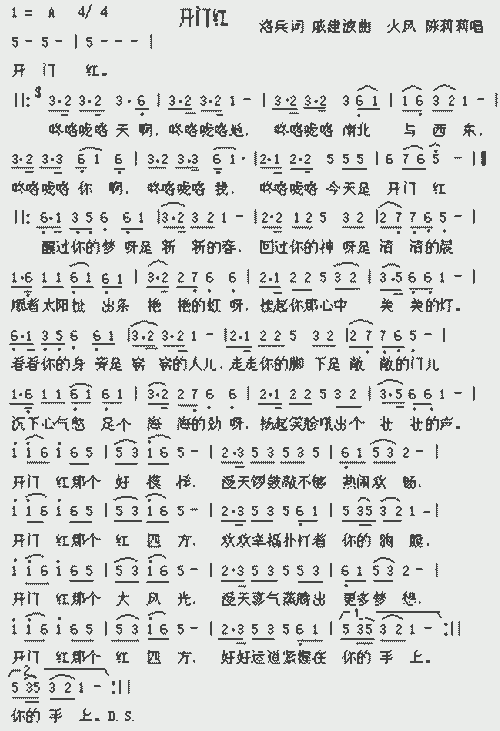 1 = A 4/4 开门红 洛兵词 戚建波曲 火风 陈莉莉唱
5 - 5 - | 5 - - - |
开 门 红。
||: 3·2 3·2 3· 6 | 3·2 3·2 1 - | 3·2 3·2 3 6 1 | 1 6 3 2 1 - |
咚咯咙咯 天 啊，咚咯咙咯地， 咚咯咙咯 南北 与 西 东，
3·2 3·3 6 1 6 | 3·2 3·3 6 1· | 2·1 2·2 5 5 5 | 6 7 6 5 - |
咚咯咙咯 你 啊， 咚咯咙咯 我， 咚咯咙咯 今天是 开门 红
||: 6·1 3 5 6 6 1 | 3·2 3 2 1 - | 2·2 1 2 5 3 2 | 2 7 7 6 5 - |
醒过你的梦 呀是 新 新的春， 回过你的神 呀是 清 清的晨
1·6 1 1 6 1 6 1 | 3·2 2 7 6 6 | 2·1 2 2 5 3 2 | 3·5 6 6 1 - |
顺着太阳扯 出条 艳 艳的红 呀，挂起你那心中 美 美的灯。
6·1 3 5 6 6 1 | 3·2 3·2 1 - | 2·1 2 2 5 3 2 | 2 7 7 6 5 - |
看看你的身 旁是 窈 窈的人儿，走走你的脚 下是 敞 敞的门儿
1·6 1 1 6 1 6 1 | 3·2 2 7 6 6 | 2·1 2 2 5 3 2 | 3·5 6 6 1 - |
沉下心气憋 足个 海 海的劲 呀，扬起笑脸吼出个 壮 壮的声。
i i 6 i 6 5 | 5 3 i 6 5 - | 2·3 5 3 5 3 5 | 6 1 5 3 2 - |
开门 红那个 好 模 样， 漫天锣鼓敲不够 热闹欢 畅，
i i 6 i 6 5 | 5 3 i 6 5 - | 2·3 5 3 5 6 1 | 5 3 5 3 2 1 - |
开门 红那个 红 四 方， 欢欢幸福扑打着 你的 胸 膛，
i i 6 i 6 5 | 5 3 i 6 5 - | 2·3 5 3 5 5 3 | 6 1 5 3 2 - |
开门 红那个 大 风 光， 漫天喜气蒸腾出 更多梦 想，
i i 6 i 6 5 | 5 3 i 6 5 - | 2·3 5 3 5 6 1 | 5 3 5 3 2 1 - :||
开门 红那个 红 四 方， 好好运道紧握在 你的 手 上。
5 3 5 3 2 1 - :||
你的 手 上。D.S.